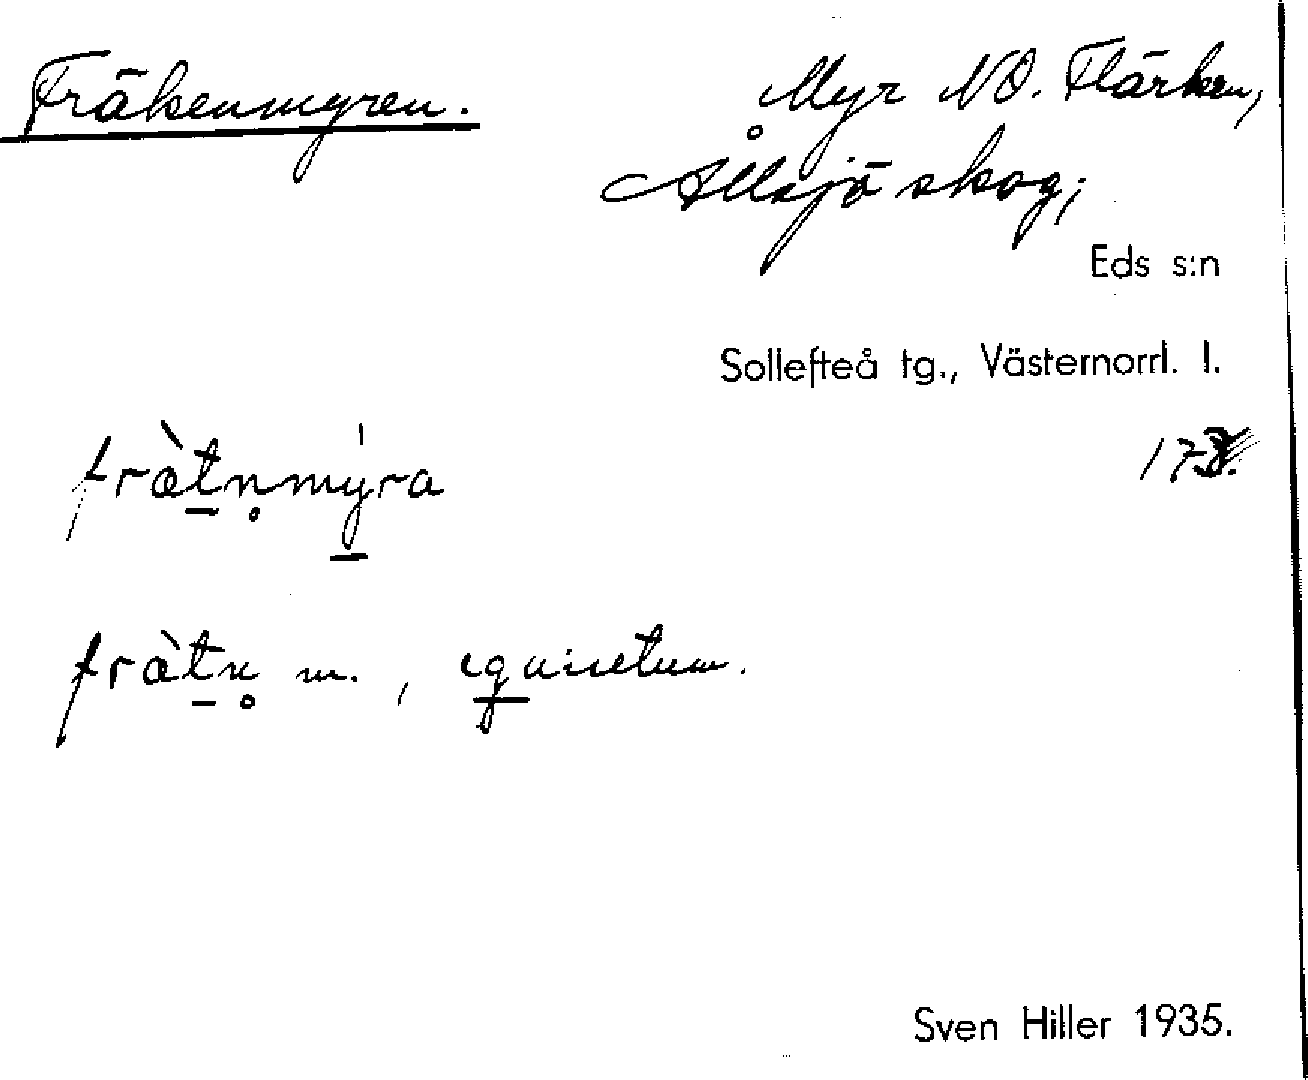 Fräkenmyren.
Myr NO. Flärken,
Ållsjö skog;
Eds s:n
Sollefteå tg., Västernorrl. l.
fràtnmýra
fràtn m., equisetum.
Sven Hiller 1935.